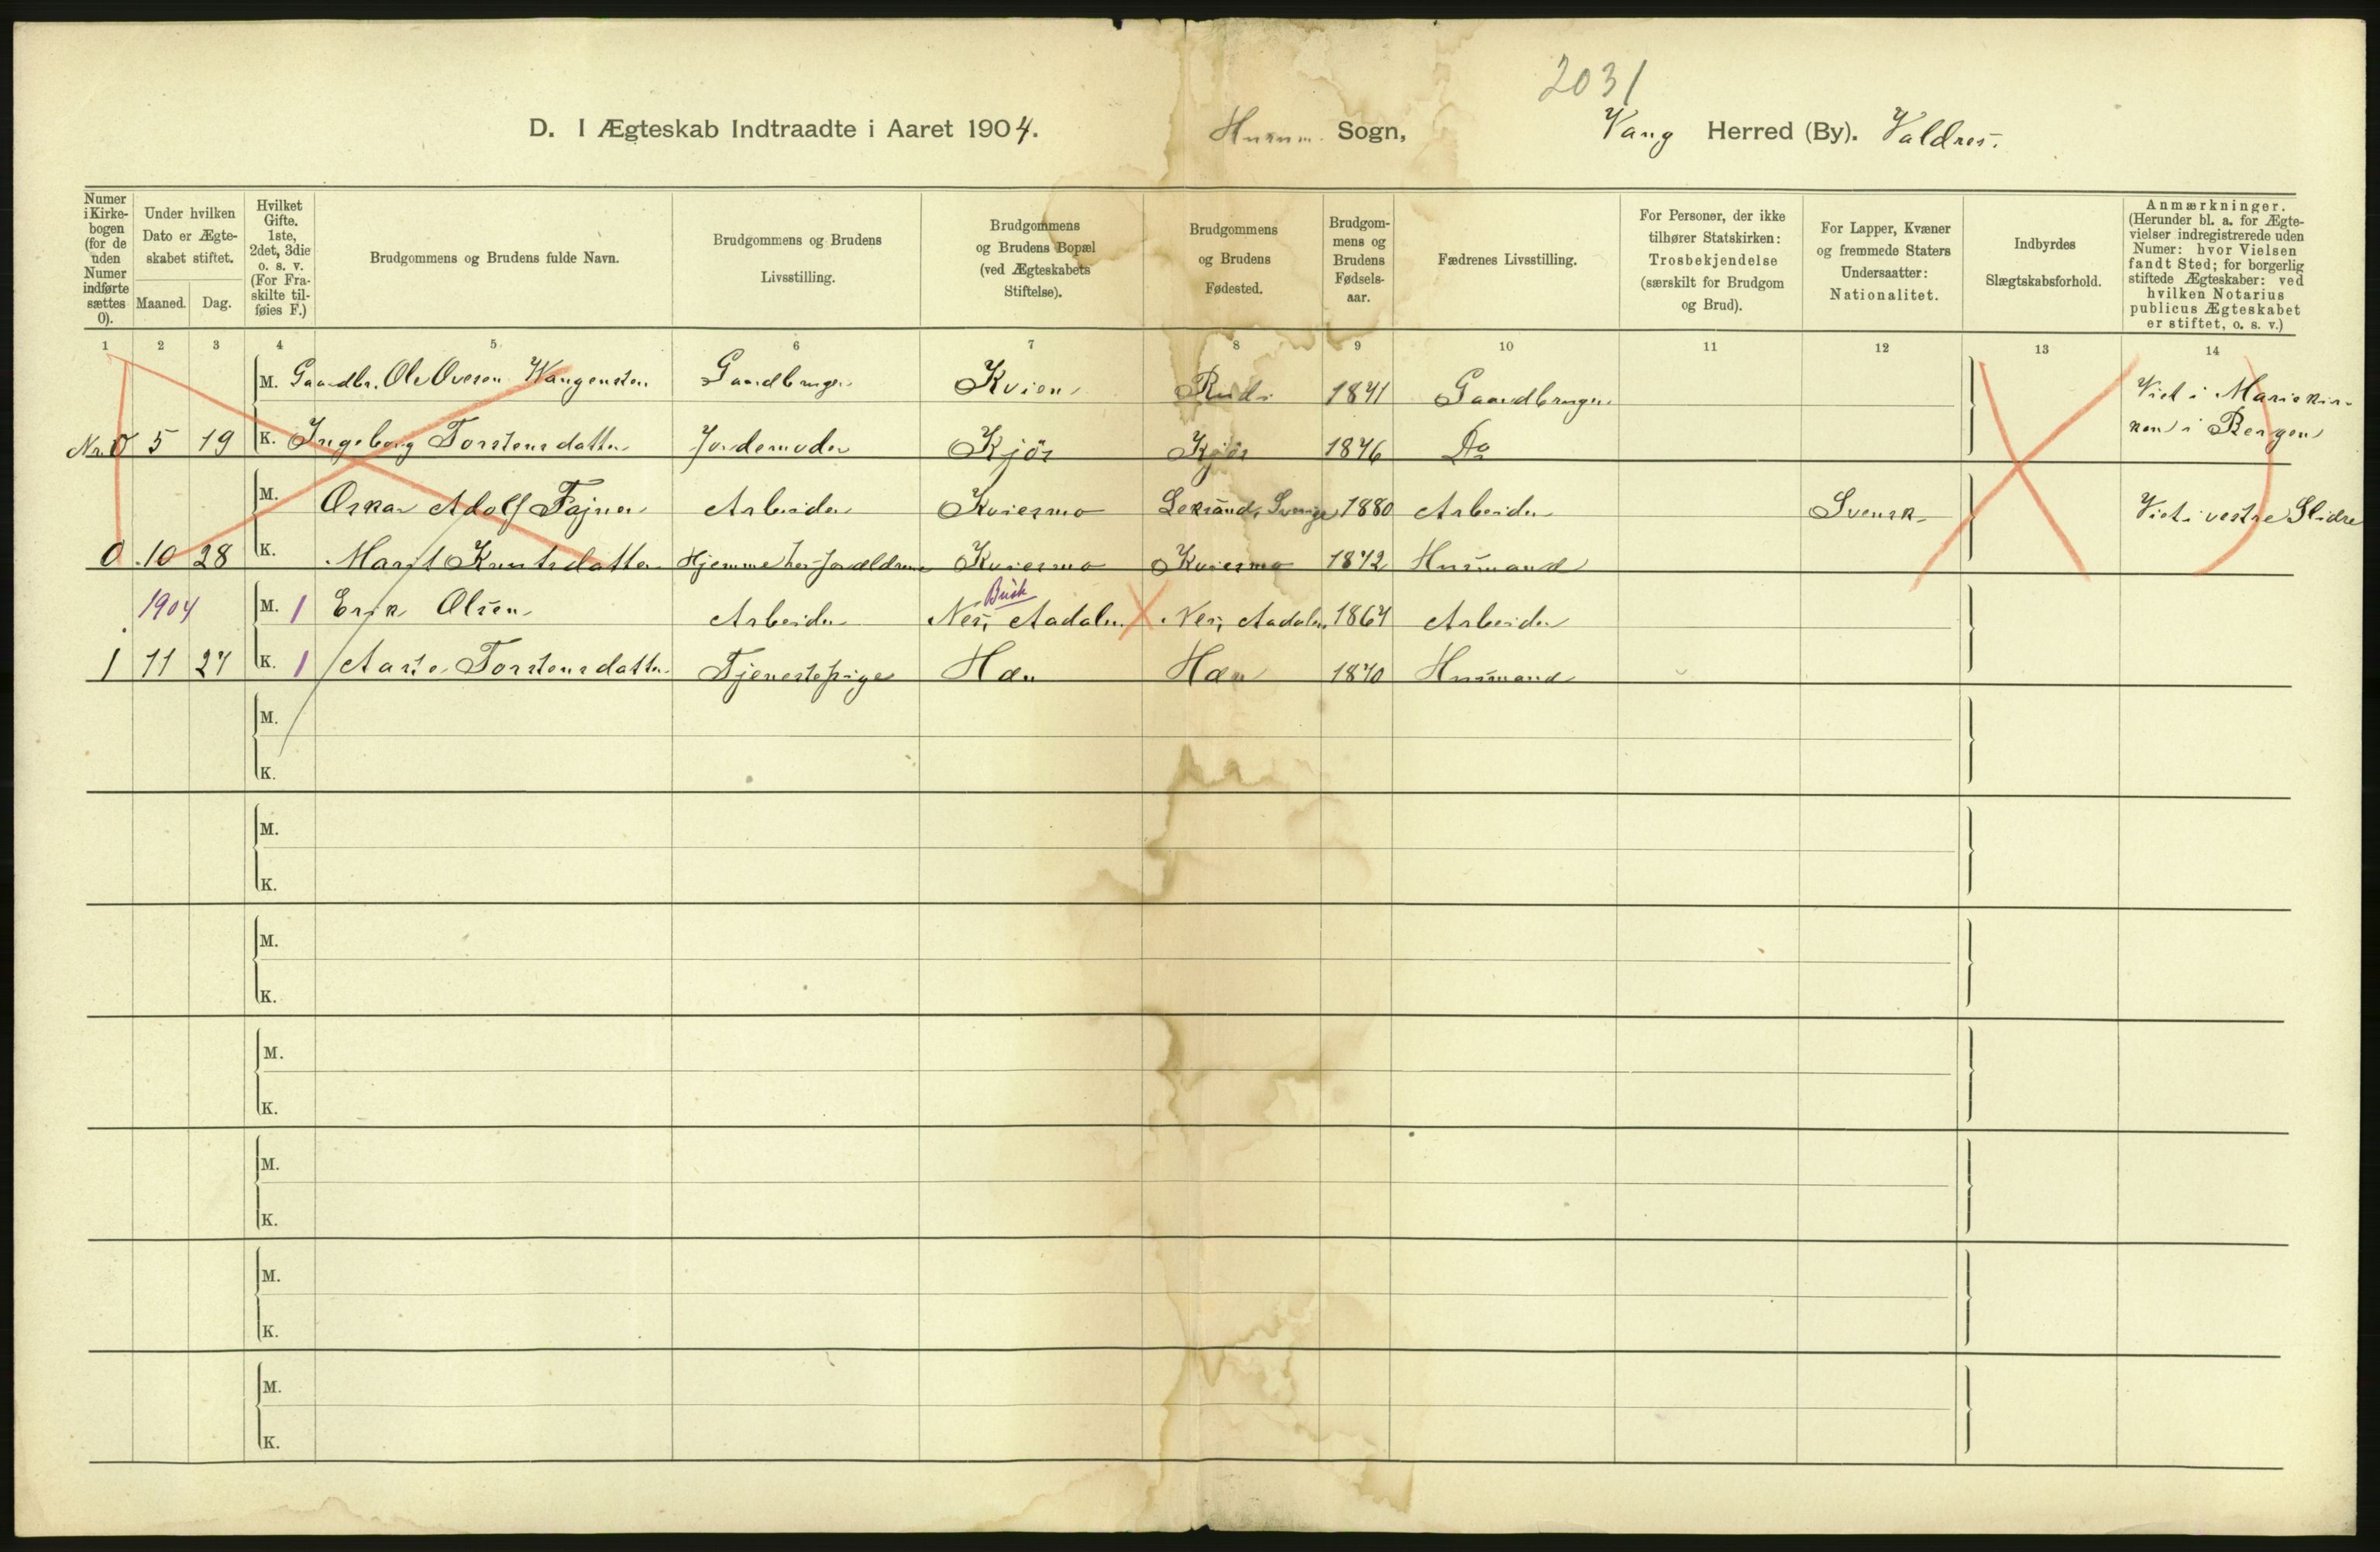 2031
D. I Ægteskab Indtraadte i Aaret 1904. Hurum Sogn, Vang Herred (By). Valdres.
Numer i Kirkebogen (for de uden Numer indførte sættes 0).
Under hvilken Dato er Ægteskabet stiftet.
Maaned. Dag.
Hvilket Gifte. 1ste, 2det, 3die o. s. v. (For Fraskilte tilføies F.)
Brudgommens og Brudens fulde Navn.
Brudgommens og Brudens Livsstilling.
Brudgommens og Brudens Bopæl (ved Ægteskabets Stiftelse).
Brudgommens og Brudens Fødested.
Brudgommens og Brudens Fødselsaar.
Fædrenes Livsstilling.
For Personer, der ikke tilhører Statskirken: Trosbekjendelse (særskilt for Brudgom og Brud).
For Lapper, Kvæner og fremmede Staters Undersaatter: Nationalitet.
Indbyrdes Slægtskabsforhold.
Anmærkninger. (Herunder bl. a. for Ægtevielser indregistrerede uden Numer: hvor Vielsen fandt Sted; for borgerlig stiftede Ægteskaber: ved hvilken Notarius publicus Ægteskabet er stiftet, o. s. v.)
1 2 3 4 5 6 7 8 9 10 11 12 13 14
M. Gaardbr. Ole Ovesen Wangensten Gaardbruger Kvien Rudi 1841 Gaardbruger Viet i Mariekir-
Nr. 0 5 19 K. Ingeborg Torstensdatter Jordemoder Kjös Kjös 1876 Do ken i Bergen
M. Oskar Adolf Fajner Arbeider Kviesmo Leksand, Sverige 1880 Arbeider Svensk Viet i vestre Slidre
0 10 28 K. Marit Knutsdatter Hjemme hos forældrene Kviesmo Kviesmo 1872 Husmand
Busk
1904 M. 1 Erik Olsen Arbeider Nes, Aadalen Nes, Aadalen 1867 Arbeider
1 11 27 K. 1 Aaste Torstensdatter Tjenestepige Hæn Hæn 1870 Husmand
M.
K.
M.
K.
M.
K.
M.
K.
M.
K.
M.
K.
M.
K.